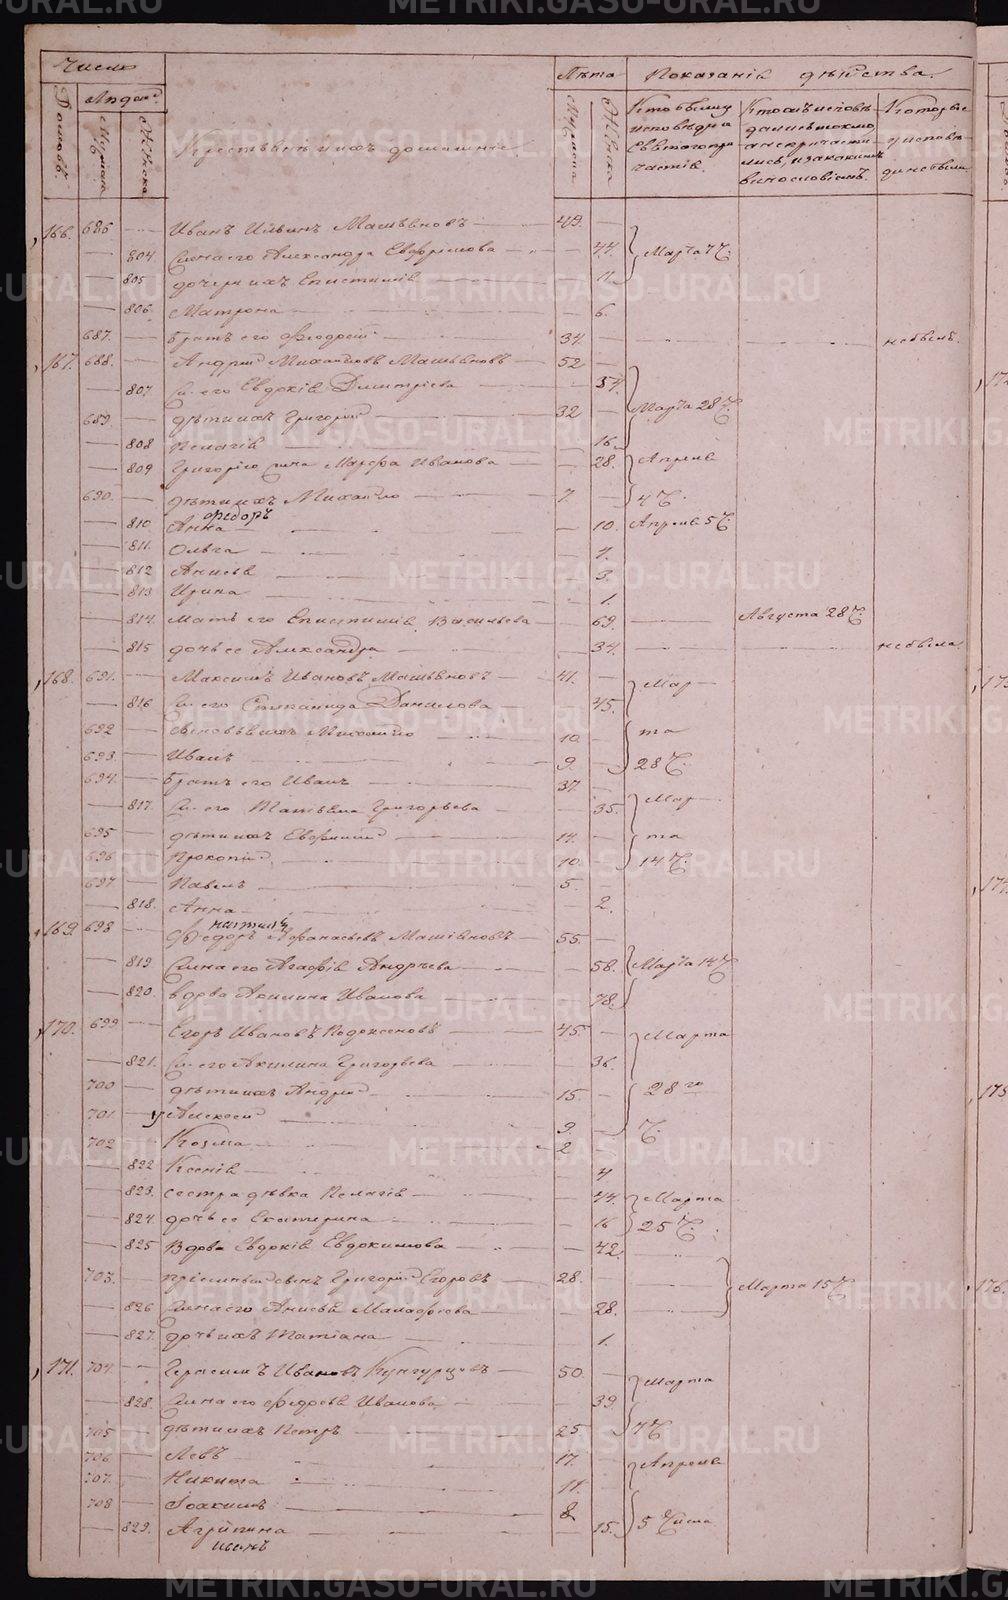 Число
Лѣта
Показанія дѣйства.
Домовъ
Людей
Мужеска
Женска
Мужеска
Женска
Крестьяне и ихъ домашніе
Кто былъ у
исповѣди и
Святаго при
частія.
Кто исповѣ-
дались токмо
а не причасти-
лись, и за какимъ
винословіемъ.
Которые
у исповѣ-
ди не были
166. 686 Иванъ Ильинъ 49.
804 Жена его Александра 44. Марта 7 Ч.
805 дочери ихъ Епистимія 11.
806. Матрона 6.
687. Братъ его Ѳеодосій 34 не былъ.
167. 688. Андрей Михайловъ 52
807. Ж. его Евдокія Димитріева 57.
689. дѣти ихъ Григорій 32 Марта 28 Ч.
808 Пелагія 16.
809 Григорію жена Марѳа Иванова 28. Апреля
690. дѣти ихъ Михайло 7. 4 Ч.
Ѳедоръ
810. Анна 10. Апреля 5 Ч.
811. Ольга 7.
812 Анисья 3.
813 Ирина 1.
814. мать его Епистимія Васильева 69. Августа 28 Ч.
815 дочь ее Александра 34. не была.
168. 691. Максимъ Ивановъ 41. Мар
816 Ж. его Степанида Данилова 45.
692 сыновья ихъ Михайло 10. та
693. Иванъ 9. 28 Ч.
694. Братъ его Иванъ 37.
817. Ж. его Татьяна Григорьева 35. Мар
695 дѣти ихъ Евфимій 14. та
696 Прокопій 10. 14 Ч.
697 Павелъ 5.
818. Анна 2.
169. 698 Ѳедоръ Аѳанасьевъ 55.
819 Жена его Агафія Андрѣева 58. Марта 14 Ч
820. вдова Акилина Иванова 78.
170. 699 Егоръ Ивановъ 45. Марта
821. Ж. его Акилина Григорьева 36.
700 дѣти ихъ Андрей 15. 28 го
701. Алексей 9. Ч.
702 Козма 2
822 Ксенія 4
823. сестра дѣвка Пелагія 44. Марта
824. дочь ее Екатерина 16 25 Ч.
825 Вдова Евдокія Евдокимова 42.
703. пріемный сынъ Григорій Егоровъ 28. Марта 15 Ч
826 Жена его Анисья 28.
827. дочь ихъ Татіана 1.
171. 704. Герасимъ Ивановъ Кунгурцовъ 50. Марта
828. Жена его Ѳедосья Иванова 39.
705 дѣти ихъ Петръ 25 7 Ч
706 Левъ 17. Апреля
707. Никита 11.
708 Іоакимъ 8
829. Агрипина 15. 5 Числа
Иванъ
METRIKI.GASO-URAL.RU